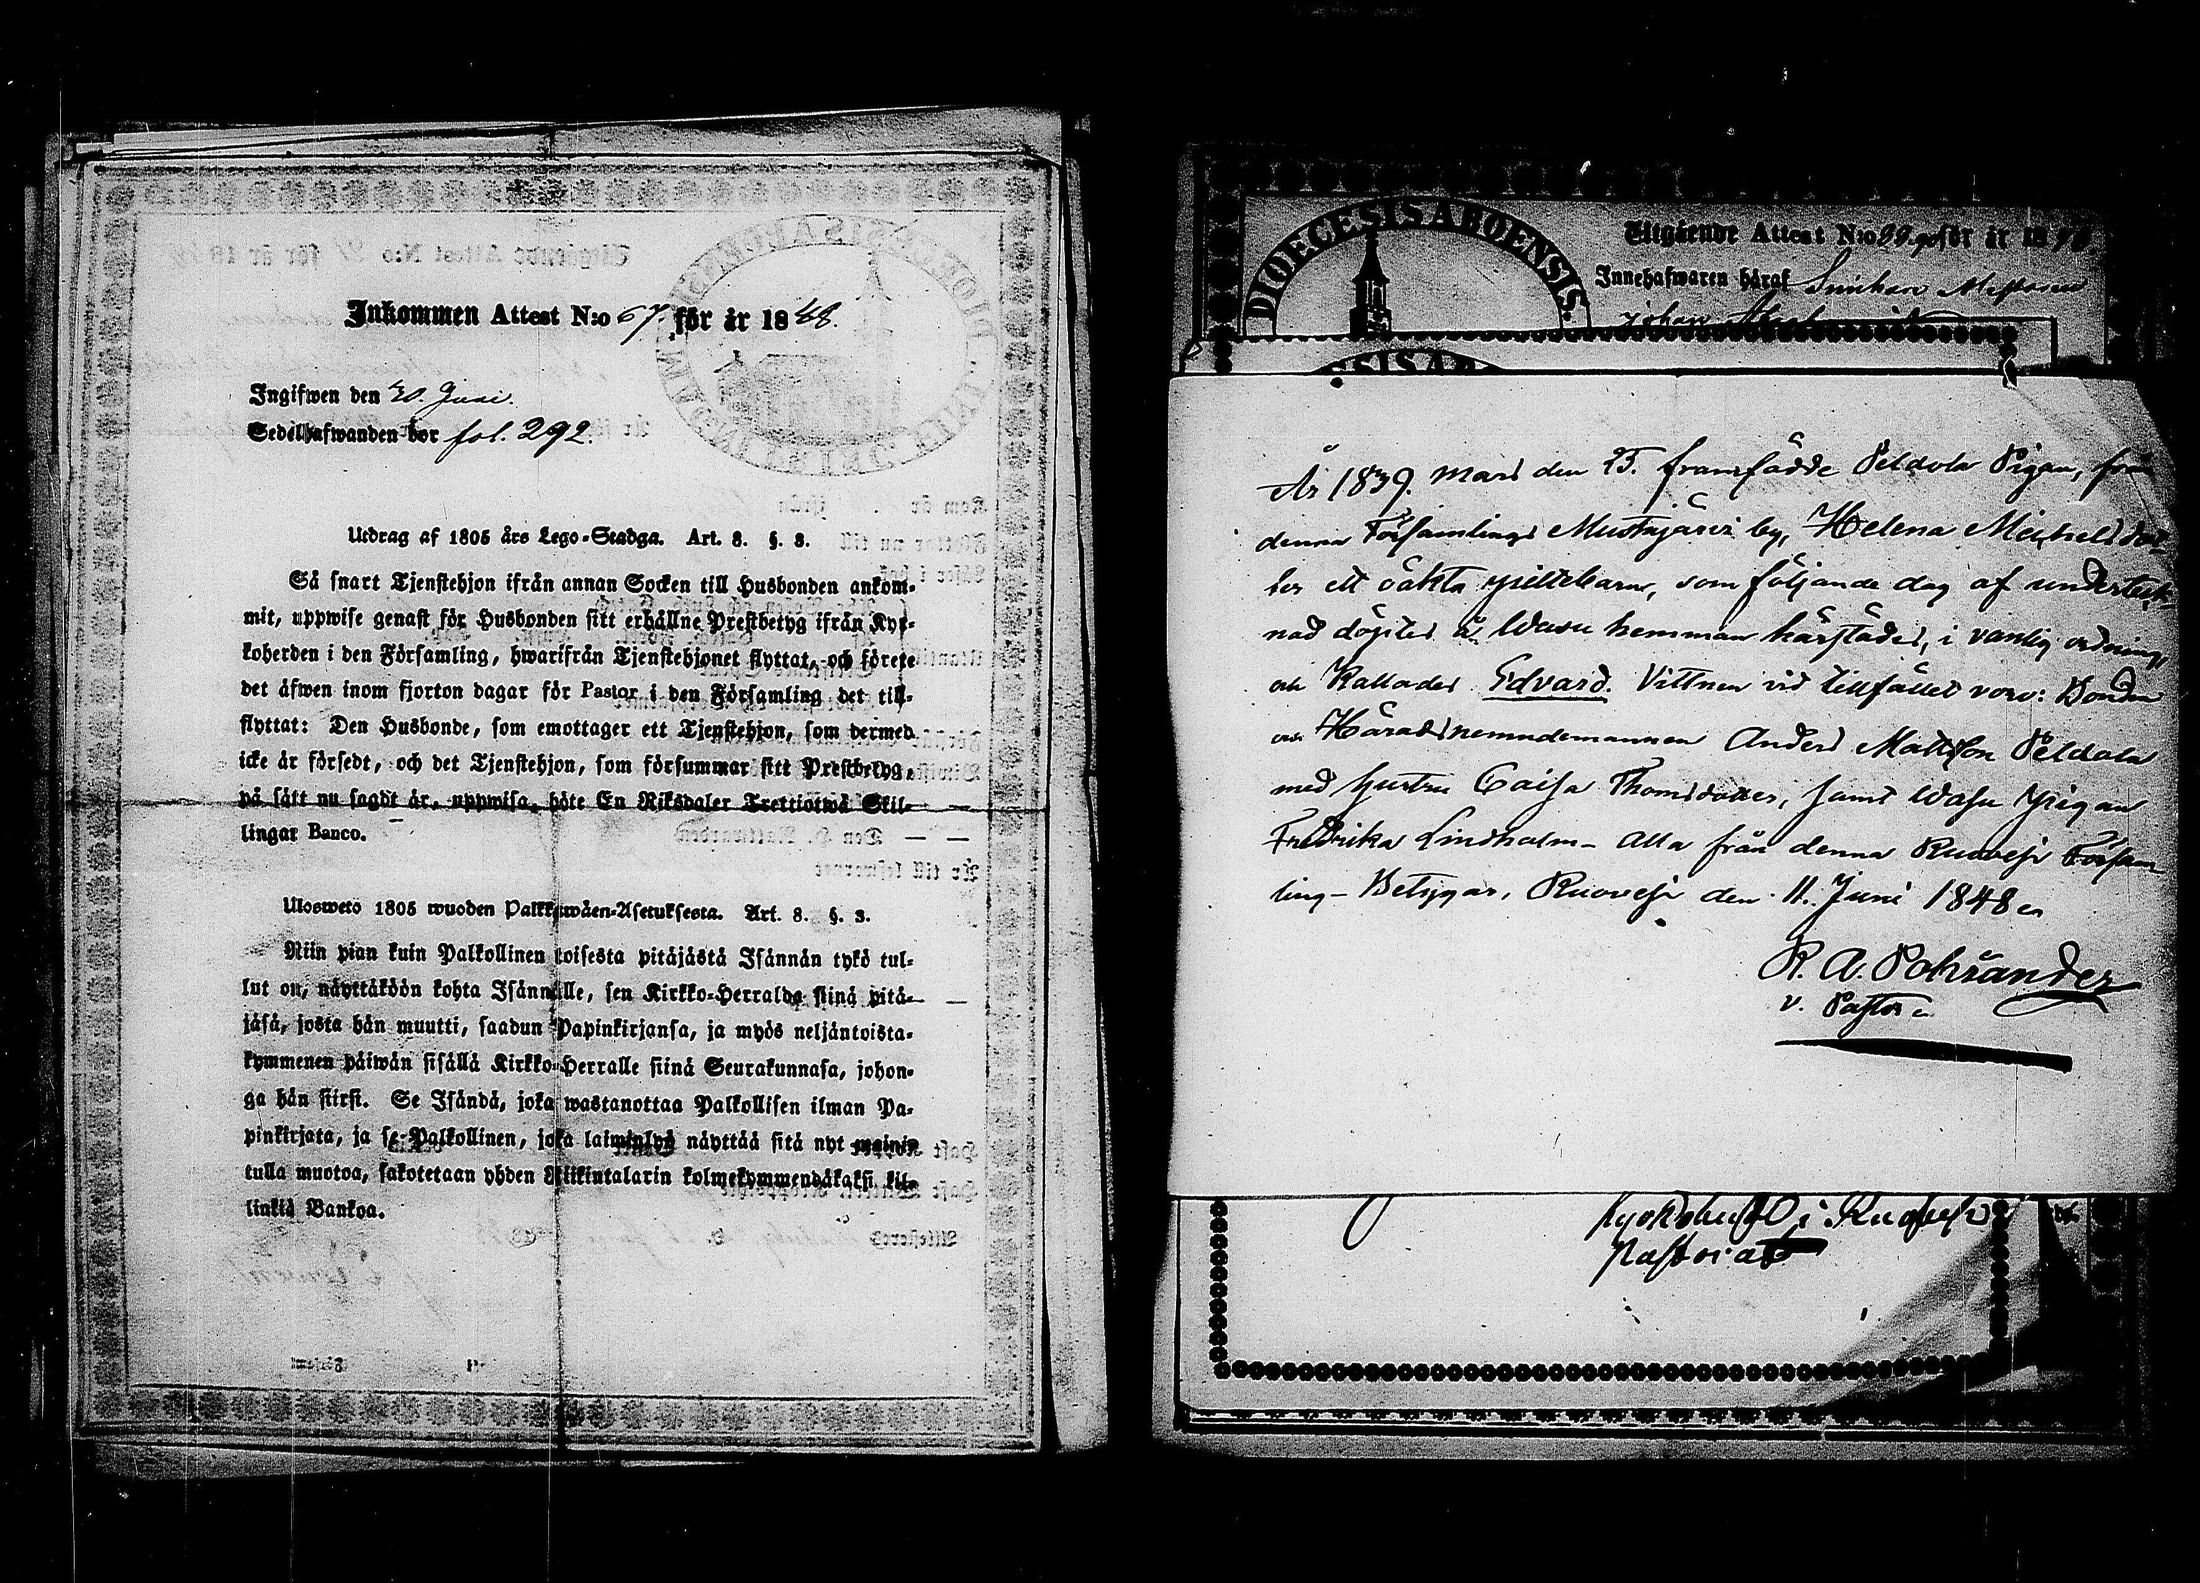 Inkommen Attest N:o 67. för år 1848.
Ingifwen den 30. Juni.
Sedelhafwanden bor fol. 292.
Utdrag af 1805 års Lego-Stadga. Art. 8. §. 3.
Så snart Tjenstehjon ifrån annan Socken till Husbonden ankom-
mit, uppwise genast för Husbonden sitt erhållne Prestbetyg ifrån Kyr-
koherden i den Församling, hwarifrån Tjenstehjonet flyttat, och förete
det äfwen inom fjorton dagar för Pastor i den Församling det till-
flyttat: Den Husbonde, som emottager ett Tjenstehjon, som dermed
icke är försedt, och det Tjenstehjon, som försummar sitt Prestbetyg,
på sätt nu sagdt är, uppwisa, böte En Riksdaler Trettiotwå Skil-
lingar Banco.
Ulosweto 1805 wuoden Palkkawäen-Asetuksesta. Art. 8. §. 3.
Niin pian kuin Palkollinen toisesta pitäjästä Isännän tykö tul-
lut on, näyttäköön kohta Isännälle, sen Kirkko-Herralda siinä pitä-
jäsä, josta hän muutti, saadun Papinkirjansa, ja myös neljäntoista-
kymmenen päiwän sisällä Kirkko-Herralle siinä Seurakunnasa, johon-
ga hän siirsi. Se Isändä, joka wastanottaa Palkollisen ilman Pa-
pinkirjata, ja se Palkollinen, joka laiminlyö näyttää sitä nyt mainit-
tulla muotoa, sakotetaan yhden Riikintalarin kolmekymmendäkaksi kil-
linkiä Bankoa.
DIOECESIS ABOENSIS.
Utgående Attest N:o 89. 90 för år 18
Innehafwaren häraf
Johan
År 1839. Mars den 25. framfödde Peldola Pigan, från
denna Församlings Mustajärvi by, Helena Michelsdot-
ter ett oäkta gossebarn, som följande dag af underteck-
nad döptes å Wasu hemman härstädes, i vanlig ordning,
och kallades Edvard. Vittnen vid tillfället voro: Bonden
och Häradsnemndemannen Anders Mattsson Peldola
med hustru Caisa Thomsdotter, samt Wasu Pigan
Fredrika Lindholm - Alla från denna Ruovesi Försam-
ling - Betygar, Ruovesi den 11. Juni 1848
R. A. Pohrander
v. Pastor
i Ruovesi
Pastorat